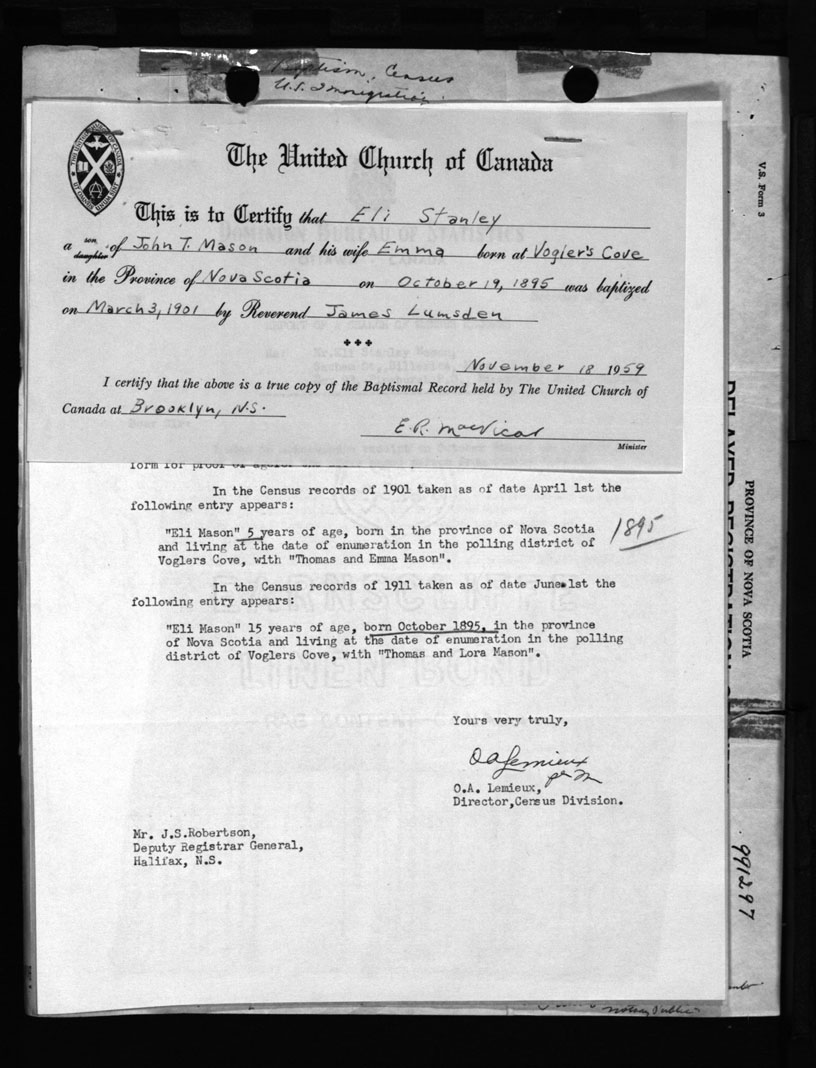 Baptism, Census
U.S. Immigration.
The United Church of Canada
This is to Certify that Eli Stanley
a son daughter of John T. Mason and his wife Emma born at Vogler's Cove
in the Province of Nova Scotia on October 19, 1895 was baptized
on March 3, 1901 by Reverend James Lumsden
November 18 1959
I certify that the above is a true copy of the Baptismal Record held by The United Church of
Canada at Brooklyn, N.S.
E.R. MacVicar
Minister
form for proof of age
In the Census records of 1901 taken as of date April 1st the
following entry appears:
"Eli Mason" 5 years of age, born in the province of Nova Scotia
and living at the date of enumeration in the polling district of
Voglers Cove, with "Thomas and Emma Mason".
1895
In the Census records of 1911 taken as of date June 1st the
following entry appears:
"Eli Mason" 15 years of age, born October 1895, in the province
of Nova Scotia and living at the date of enumeration in the polling
district of Voglers Cove, with "Thomas and Lora Mason".
Yours very truly,
O A Lemieux
per M
O.A. Lemieux,
Director,Census Division.
Mr. J.S.Robertson,
Deputy Registrar General,
Halifax, N.S.
V.S. Form 3
PROVINCE OF NOVA SCOTIA
DELAYED REGISTRATION
991297
Notary Public